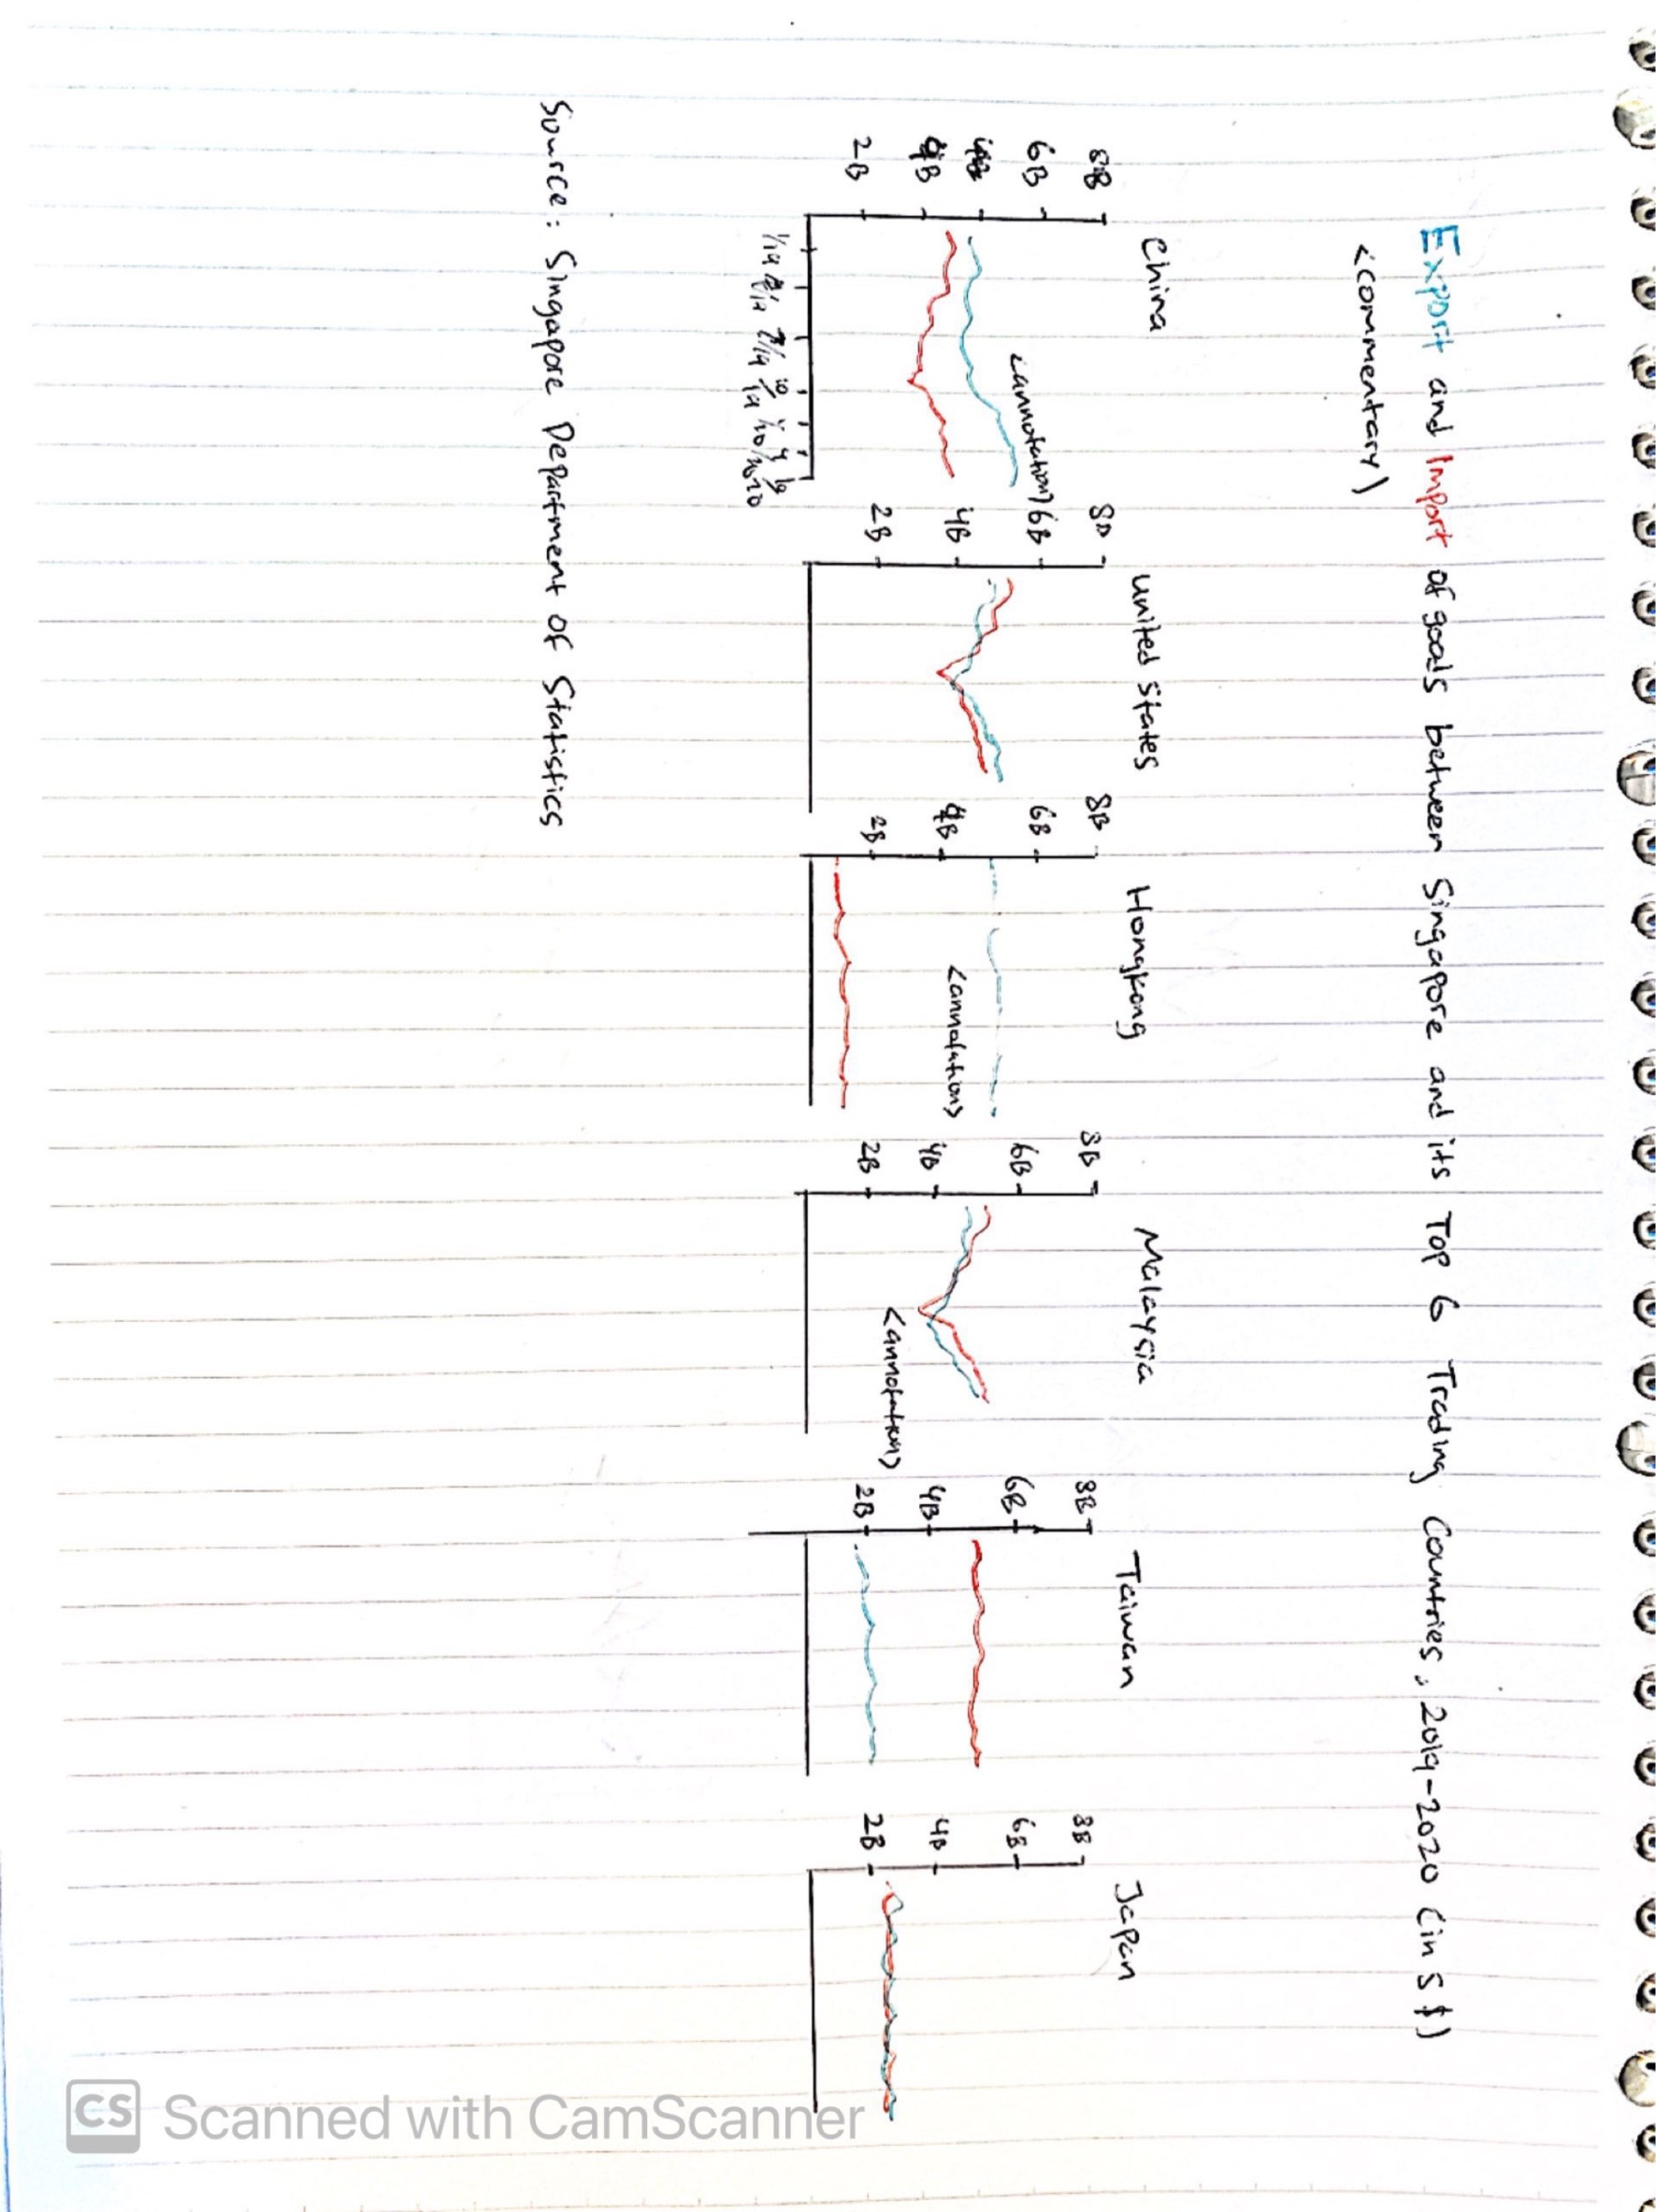 Export and Import of goods between Singapore and its Top 6 Trading Countries, 2019-2020 (in S $)
<commentary>
China
8B
6B
4B
2B
<annotation>
1/19
7/19
10/19
1/20
United States
6B
4B
2B
Hongkong
8B
6B
4B
2B
<annotation>
Malaysia
8B
6B
4B
2B
<annotation>
Taiwan
8B
6B
4B
2B
Japan
8B
6B
4B
2B
Source: Singapore Department of Statistics
CS Scanned with CamScanner